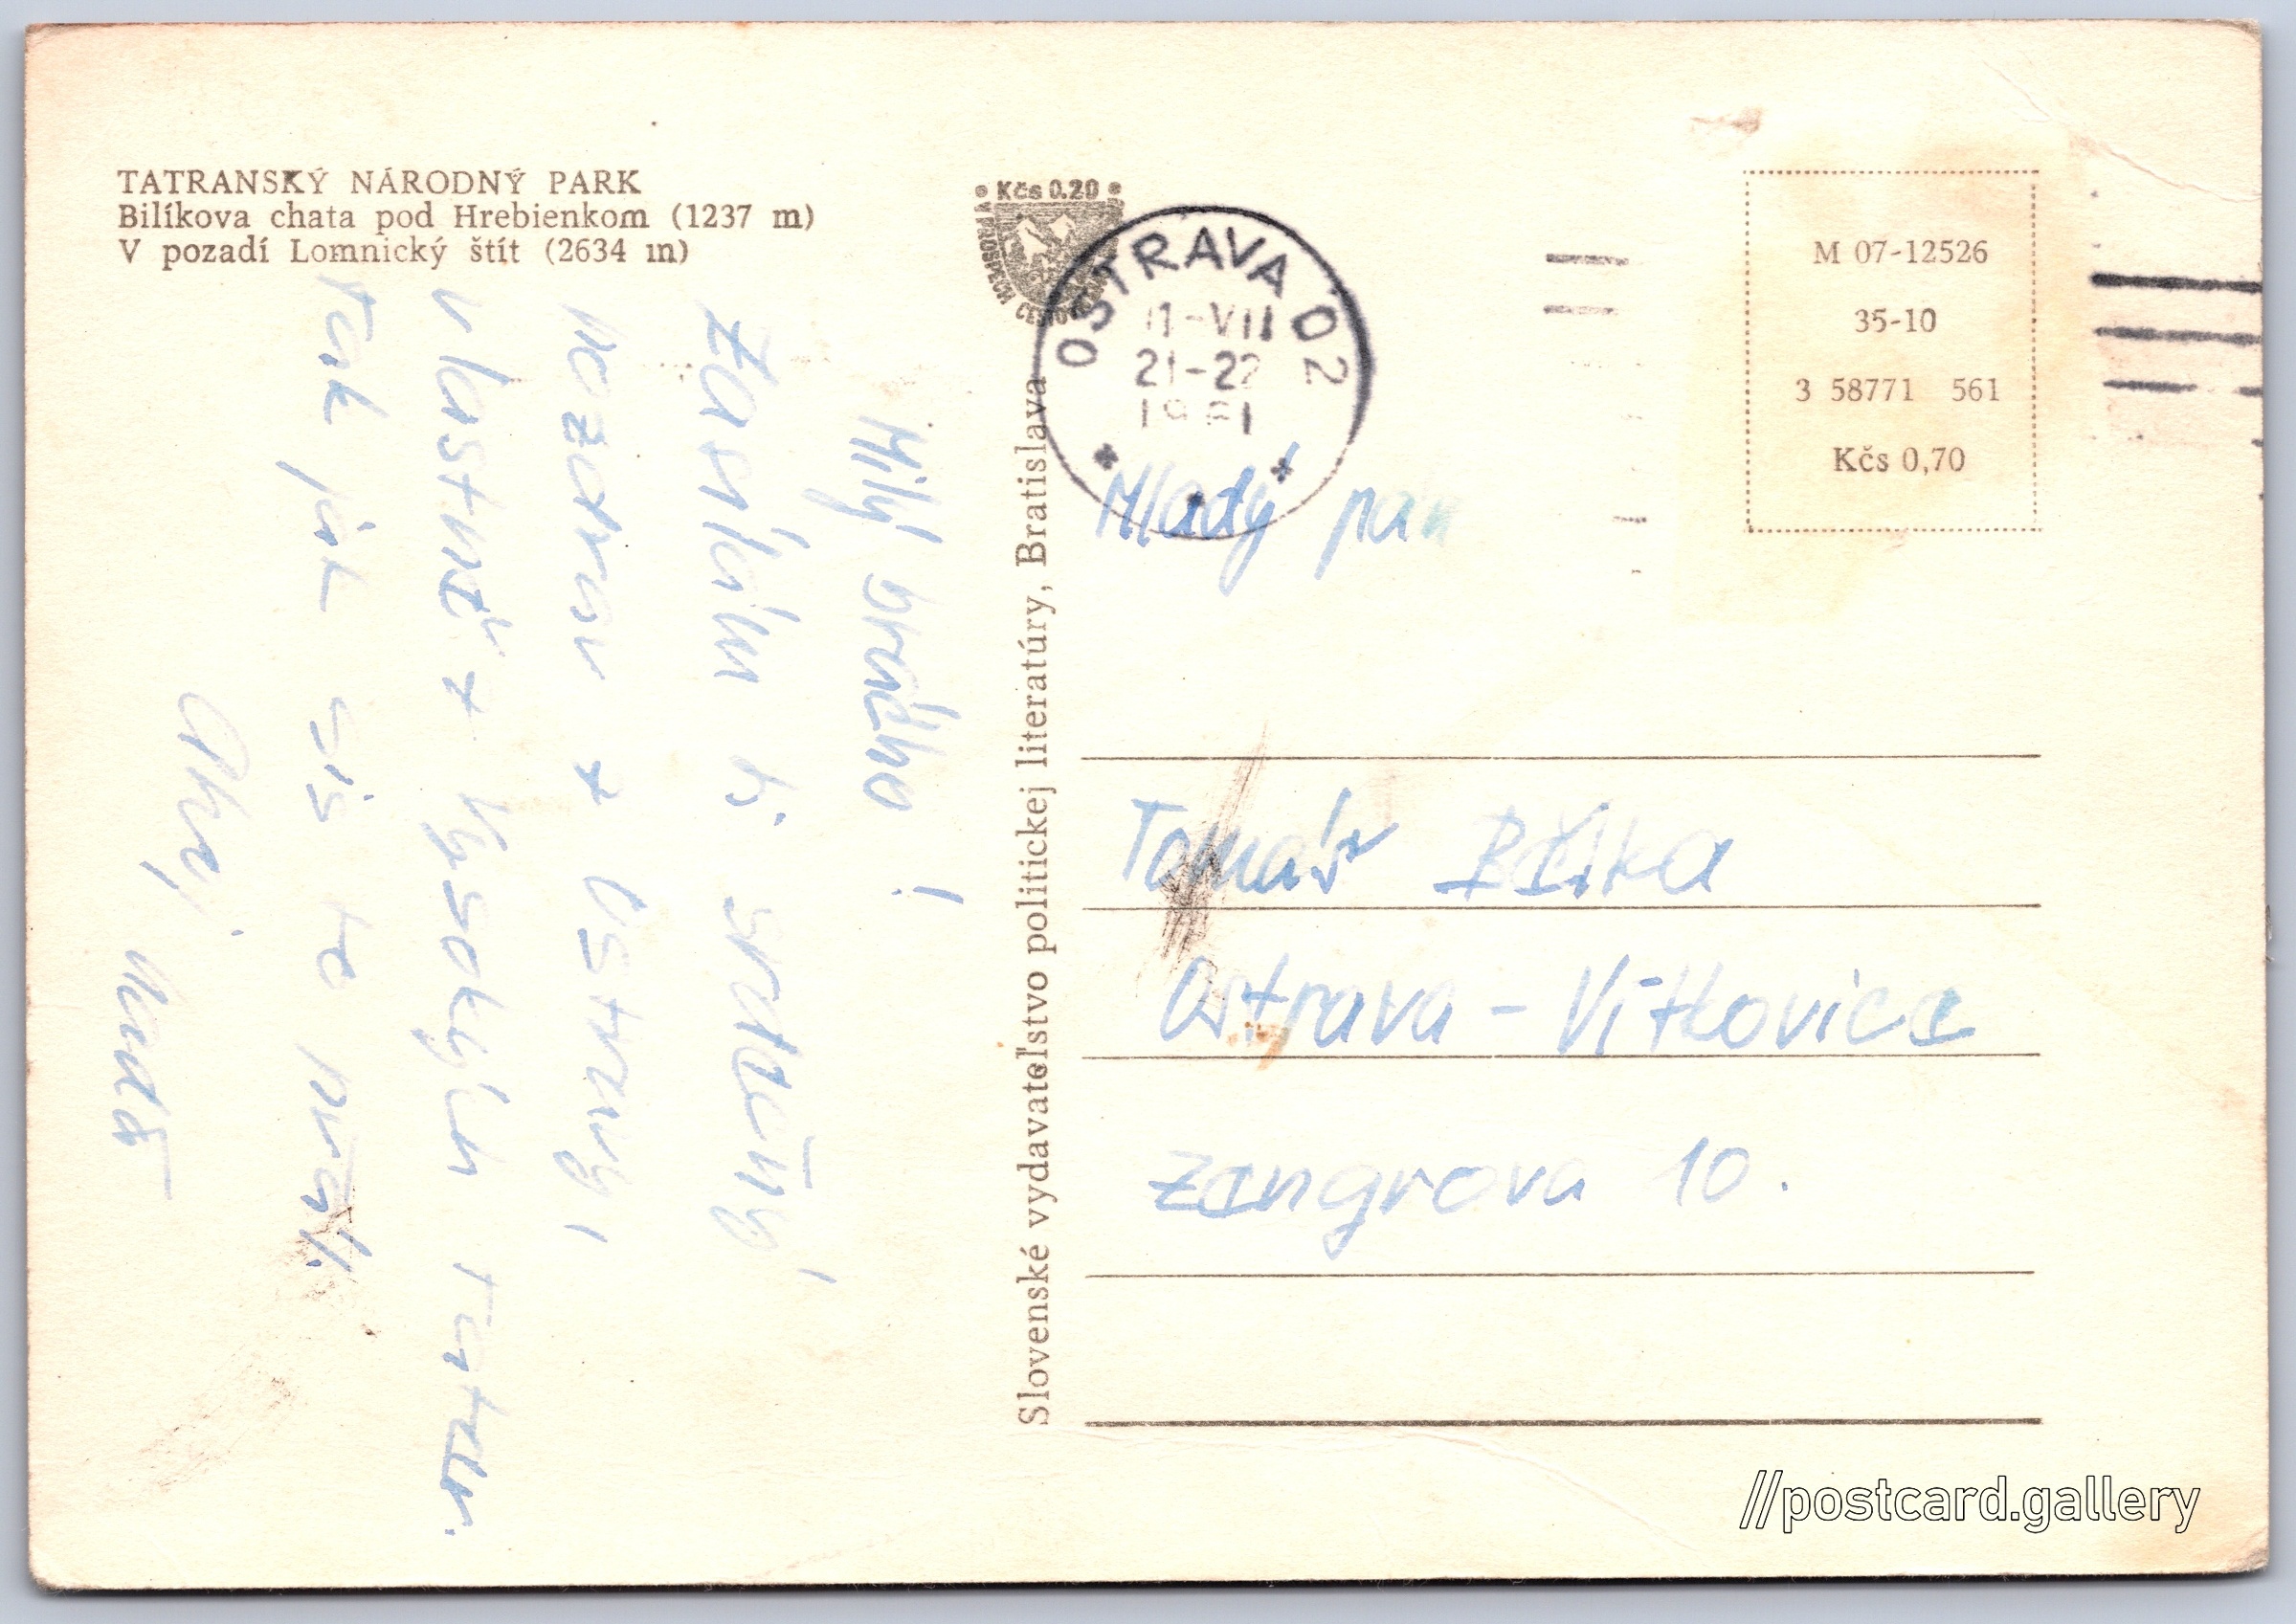 TATRANSKÝ NÁRODNÝ PARK
Bilíkova chata pod Hrebienkom (1237 m)
V pozadí Lomnický štít (2634 m)
Milý brácho!
Zasílám ti srdečný
pozdrav z Ostravy,
vlastně z Vysokých Tater.
Tak jak sis to přál.
Ahoj
Slovenské vydavateľstvo politickej literatúry, Bratislava
Kčs 0.20
OSTRAVA 02
11-VII
21-22
M 07-12526
35-10
3 58771 561
Kčs 0,70
Mladý pan
Tomáš
Ostrava - Vítkovice
Zengrova 10.
//postcard.gallery